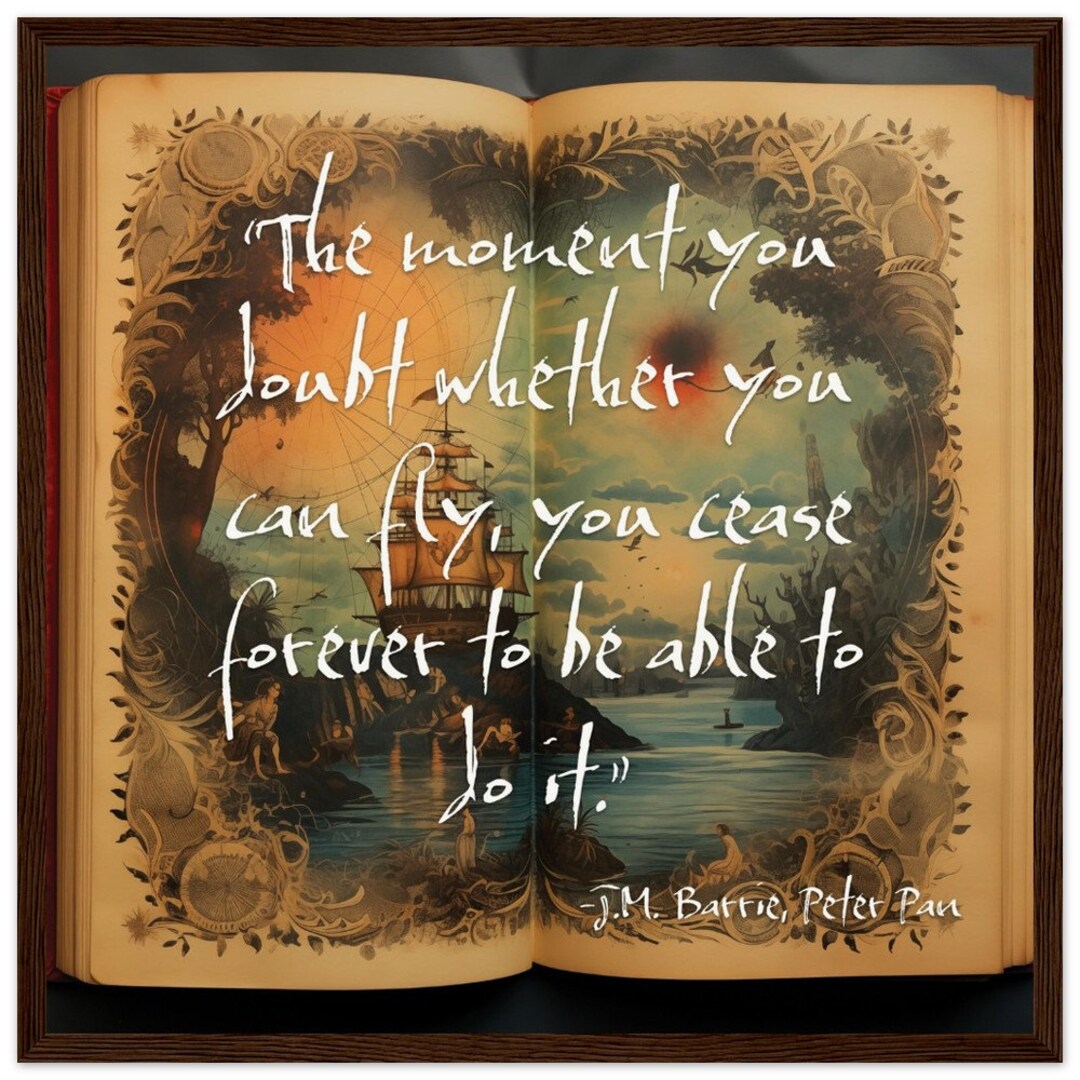 “The moment you
doubt whether you
can fly, you cease
forever to be able to
do it.”
-J.M. Barrie, Peter Pan